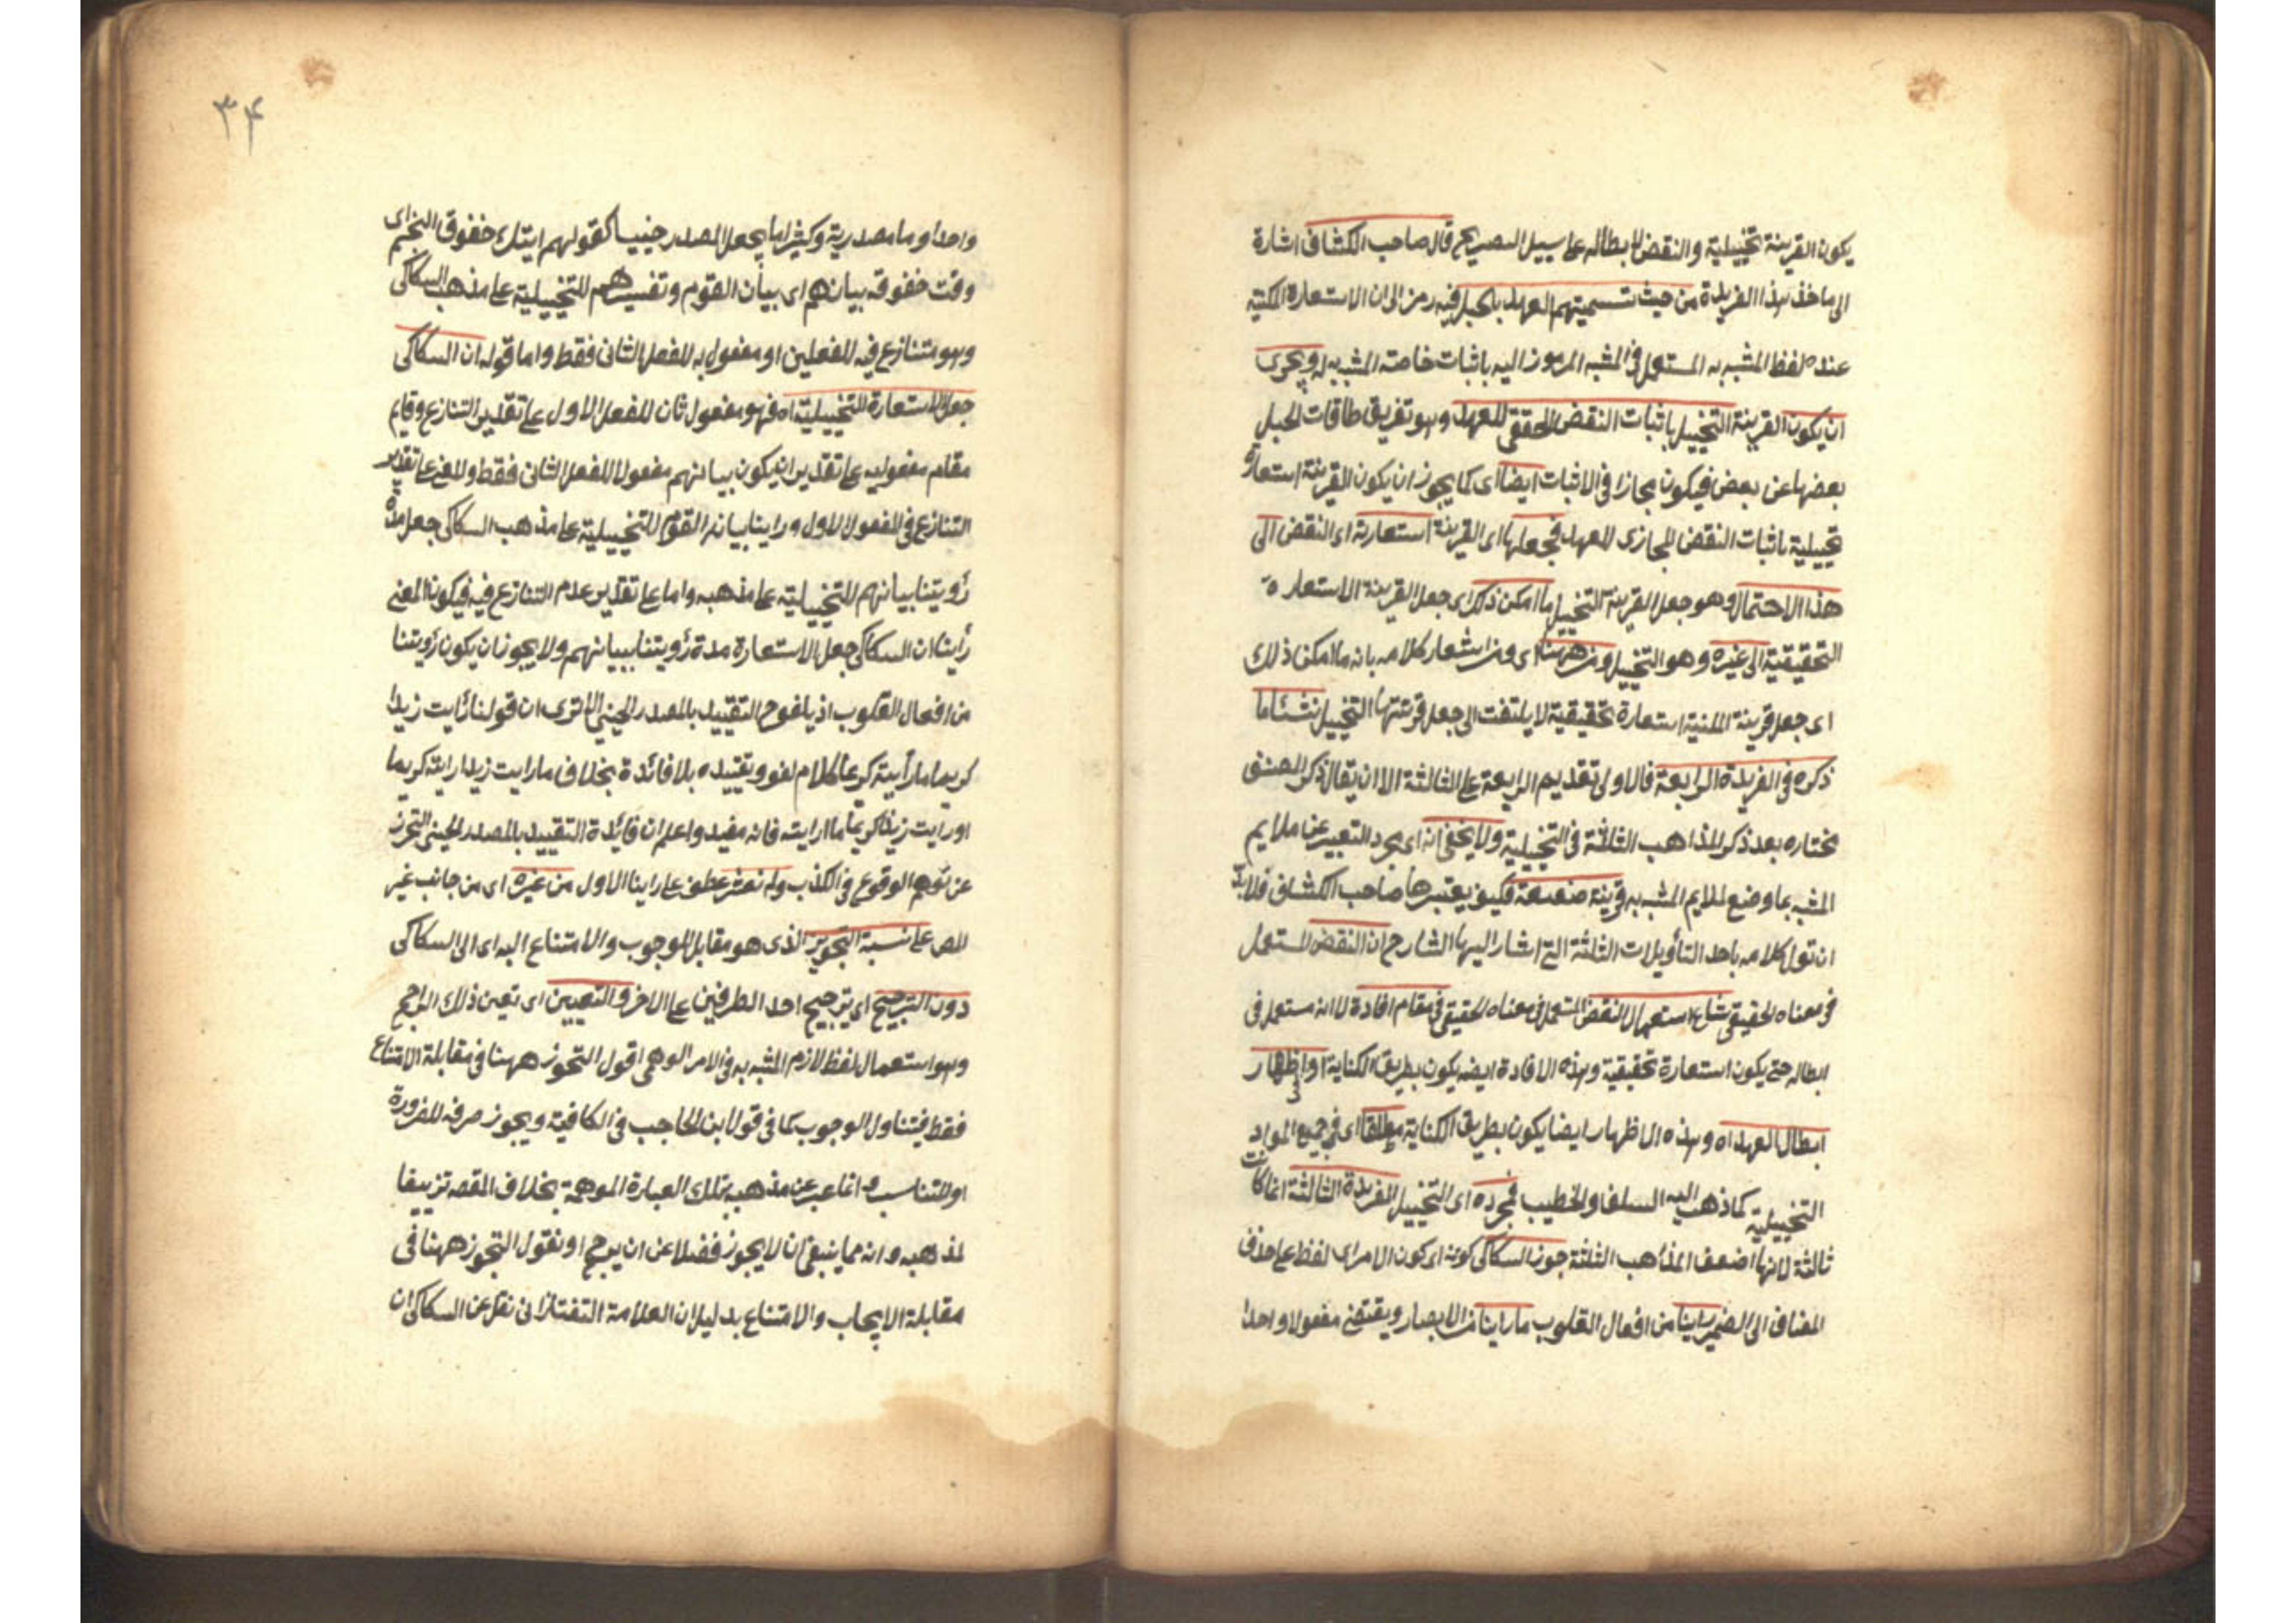 يكون القرينة تخييلية والنقض لابطاله على سبيل التصريح قال صاحب الكشاف اشارة
الى ماخذ هذا الفريدة من حيث تسميتهم العهد بالحبل فيه رمز الى ان الاستعارة المكنية
عنده لفظ المشبه به المستعمل في المشبه المرموز اليه باثبات خاصته المشبه به له ويجرى
ان يكون القرينة التخييل باثبات النقض الحقيقى للعهد وهو تفريق طاقات الحبل
بعضها عن بعض فيكون مجازا فى الاثبات ايضا اى كما يجوز ان يكون القرينة استعارة
تخييلية باثبات النقض المجازى للعهد فجعلها اى القرينة استعارية اى النقض الى
هذا الاحتمال وهو جعل القرينة التخييل ما امكن ذلك اى جعل القرينة الاستعاره
التحقيقية الى غيره وهو التخييل ومن ههنا اى ومن اشعار كلامه بانه ما امكن ذلك
اى جعل قرينة المكنية استعارة تحقيقية لا يلتفت الى جعل قرينتها التخييل نشئا ما
ذكره فى الفريدة الرابعة فالاولى تقديم الرابعة على الثالثة الا ان يقال ذكر المصنف
مختاره بعد ذكر المذاهب الثلثة فى التخييلية ولا يخفى انه اى مجرد التعبير عن ملايم
المشبه بما وضع لملايم المشبه به قرينة ضعيفة فكيف يعتبرها صاحب الكشاف فلا بد
ان تول كلامه باحد التأويلات الثلثة التى اشار اليها الشارح ان النقض المستعمل
فى معناه الحقيقى شاع استعمال النقض المستعمل فى معناه الحقيقى فى مقام افادة لا انه مستعمل فى
ابطاله حتى يكون استعارة تحقيقية وهذه الافادة ايضه يكون بطريق الكناية او اظهار
ابطال العهد اه وهذه الاظهار ايضا يكون بطريق الكناية مطلقا اى فى جميع المواد
التخييلية كما ذهب اليه السلف والخطيب فى مجرده اى التخييل الفريدة الثالثة انما كانت
ثالثة لانها اضعف المذاهب الثلثة جوز السكاكى كونه اى كون الامر اى لفظ على حذف
المضاف الى الضمير راينا من افعال القلوب ما راينا من الابصار ويقتضى مفعولا واحدا
٣۴
واحدا وما مصدرية وكثيرا ما يجعل المصدر حينيا كقولهم ايتك خفوق النجم اى
وقت خفوقه بيانهم اى بيان القوم وتفسيرهم للتخييلية على مذهب السكاكى
وهو متنازع فيه للفعلين او مفعول به للفعل الثانى فقط واما قوله ان السكاكى
جعل الاستعارة التخييلية اه فهو مفعول ثان للفعل الاول على تقدير التنازع وقايم
مقام مفعوليه على تقدير ان يكون بيانهم مفعولا للفعل الثانى فقط والمعنى على تقدير
التنازع فى المفعول الاول وراينا بيان القوم للتخييلية على مذهب السكاكى جعل مدة
رؤيتنا بيانهم للتخييلية على مذهبه واما على تقدير عدم التنازع فيه فيكون المعنى
رأينا ان السكاكى جعل الاستعارة مدة رؤيتنا ببيانهم ولا يجوز ان يكون رؤيتنا
من افعال القلوب اذ يلغو ح التقييد بالمصدر الحينى الا ترى ان قولنا رايت زيدا
كريما ما رأيته كريما كلام لغو وتقييده بلا فائدة بخلاف ما رايت زيدا رايته كريما
او رايت زيدا كريما ما ارايته فانه مفيد واعلم ان فائدة التقييد بالمصدر الحينى التحرز
عن توهم الوقوع فى الكذب ولم نعثر عطف على راينا الاول من غيره اى من جانب غير
المص على نسبة التجويز الذى هو مقابل للوجوب والامتناع اليه اى الى السكاكى
دون الترجيح اى ترجيح احد الطرفين على الاخر والتعيين اى تعين ذلك الراجح
وهو استعمال لفظ لازم المشبه به فى الامر الوهمى اقول التجوز ههنا فى مقابلة الامتناع
فقط فيتناول الوجوب كما فى قول ابن الحاجب فى الكافية ويجوز صرفه للضرورة
او للتناسب وانما عبر عن مذهبه بتلك العبارة الموهمة بخلاف المقصه تزييفا
لمذهبه وانه مما ينبغى ان لا يجوز فضلا عن ان يرجح او نقول التجوز ههنا فى
مقابلة الايجاب والامتناع بدليل ان العلامة التفتازانى نقل عن السكاكى ان